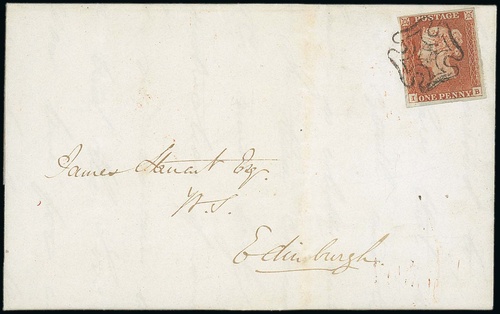 POSTAGE
ONE PENNY
I B
James Stewart Esq.
W.S.
Edinburgh.